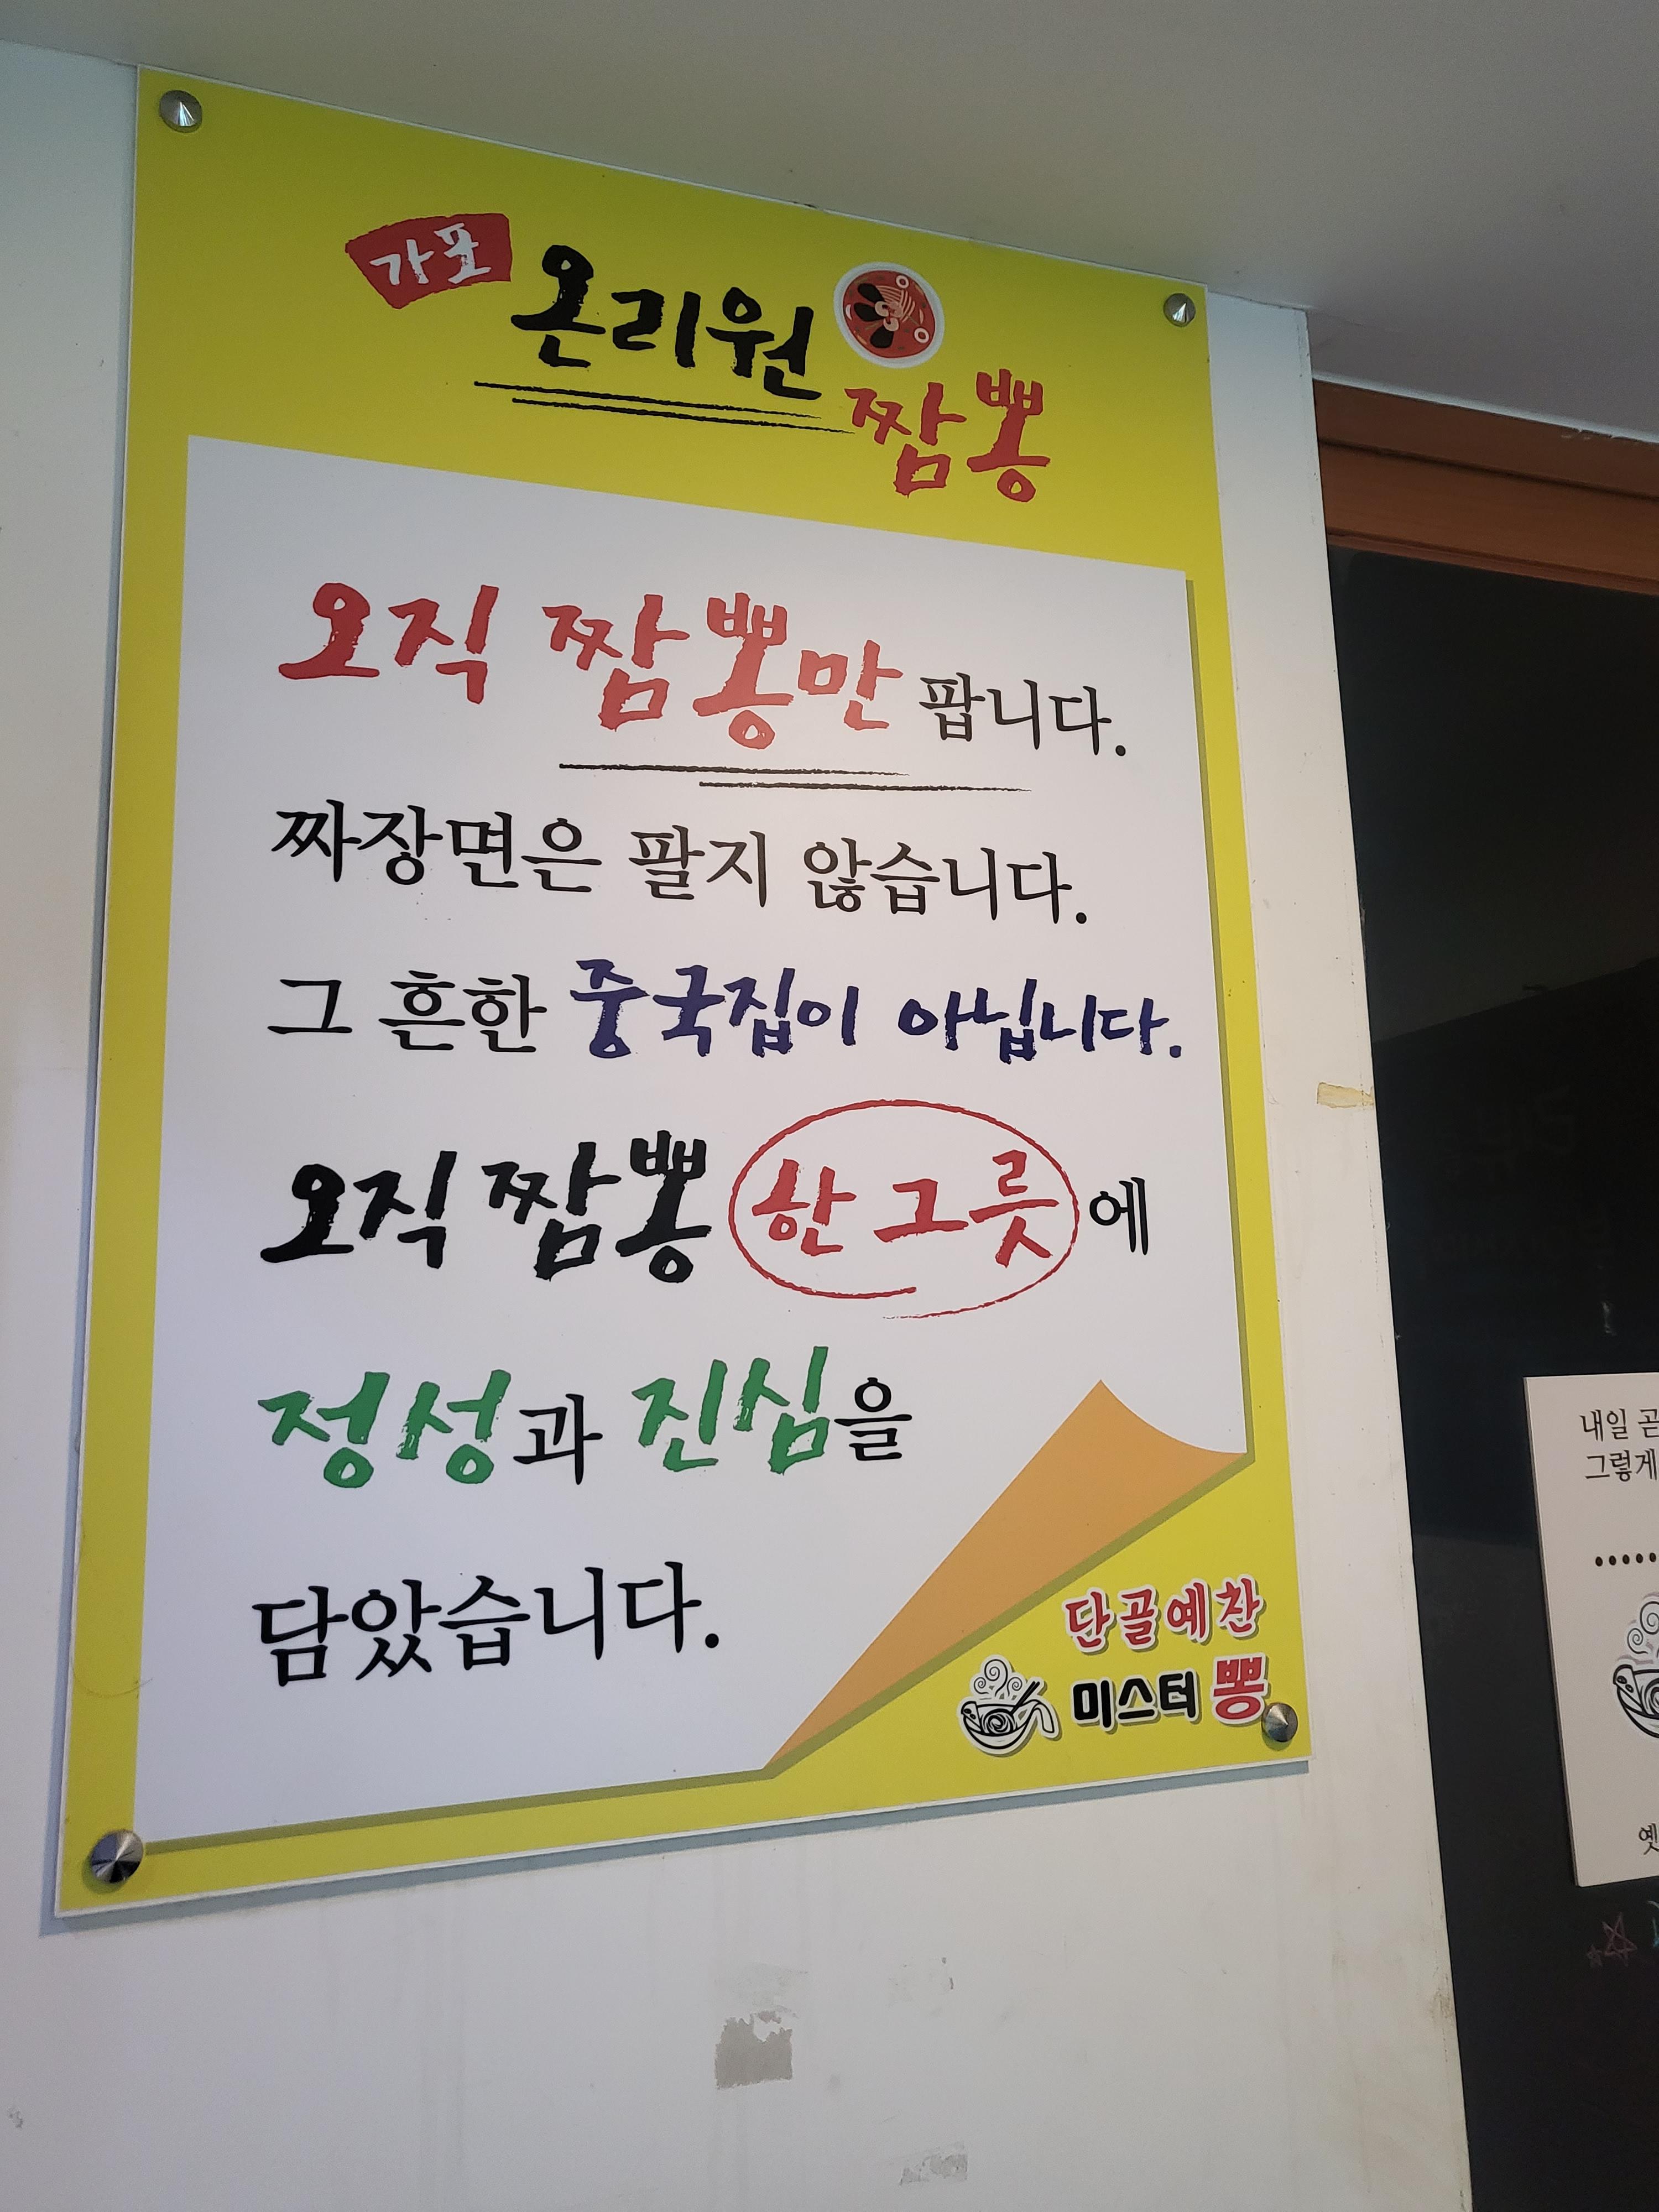 가포
온리원
짬뽕
오직 짬뽕만 팝니다.
짜장면은 팔지 않습니다.
그 흔한 중국집이 아닙니다.
오직 짬뽕 한그릇에
정성과 진심을
담았습니다.
단골예찬
미스터 뽕
내일 곧
그렇게
옛